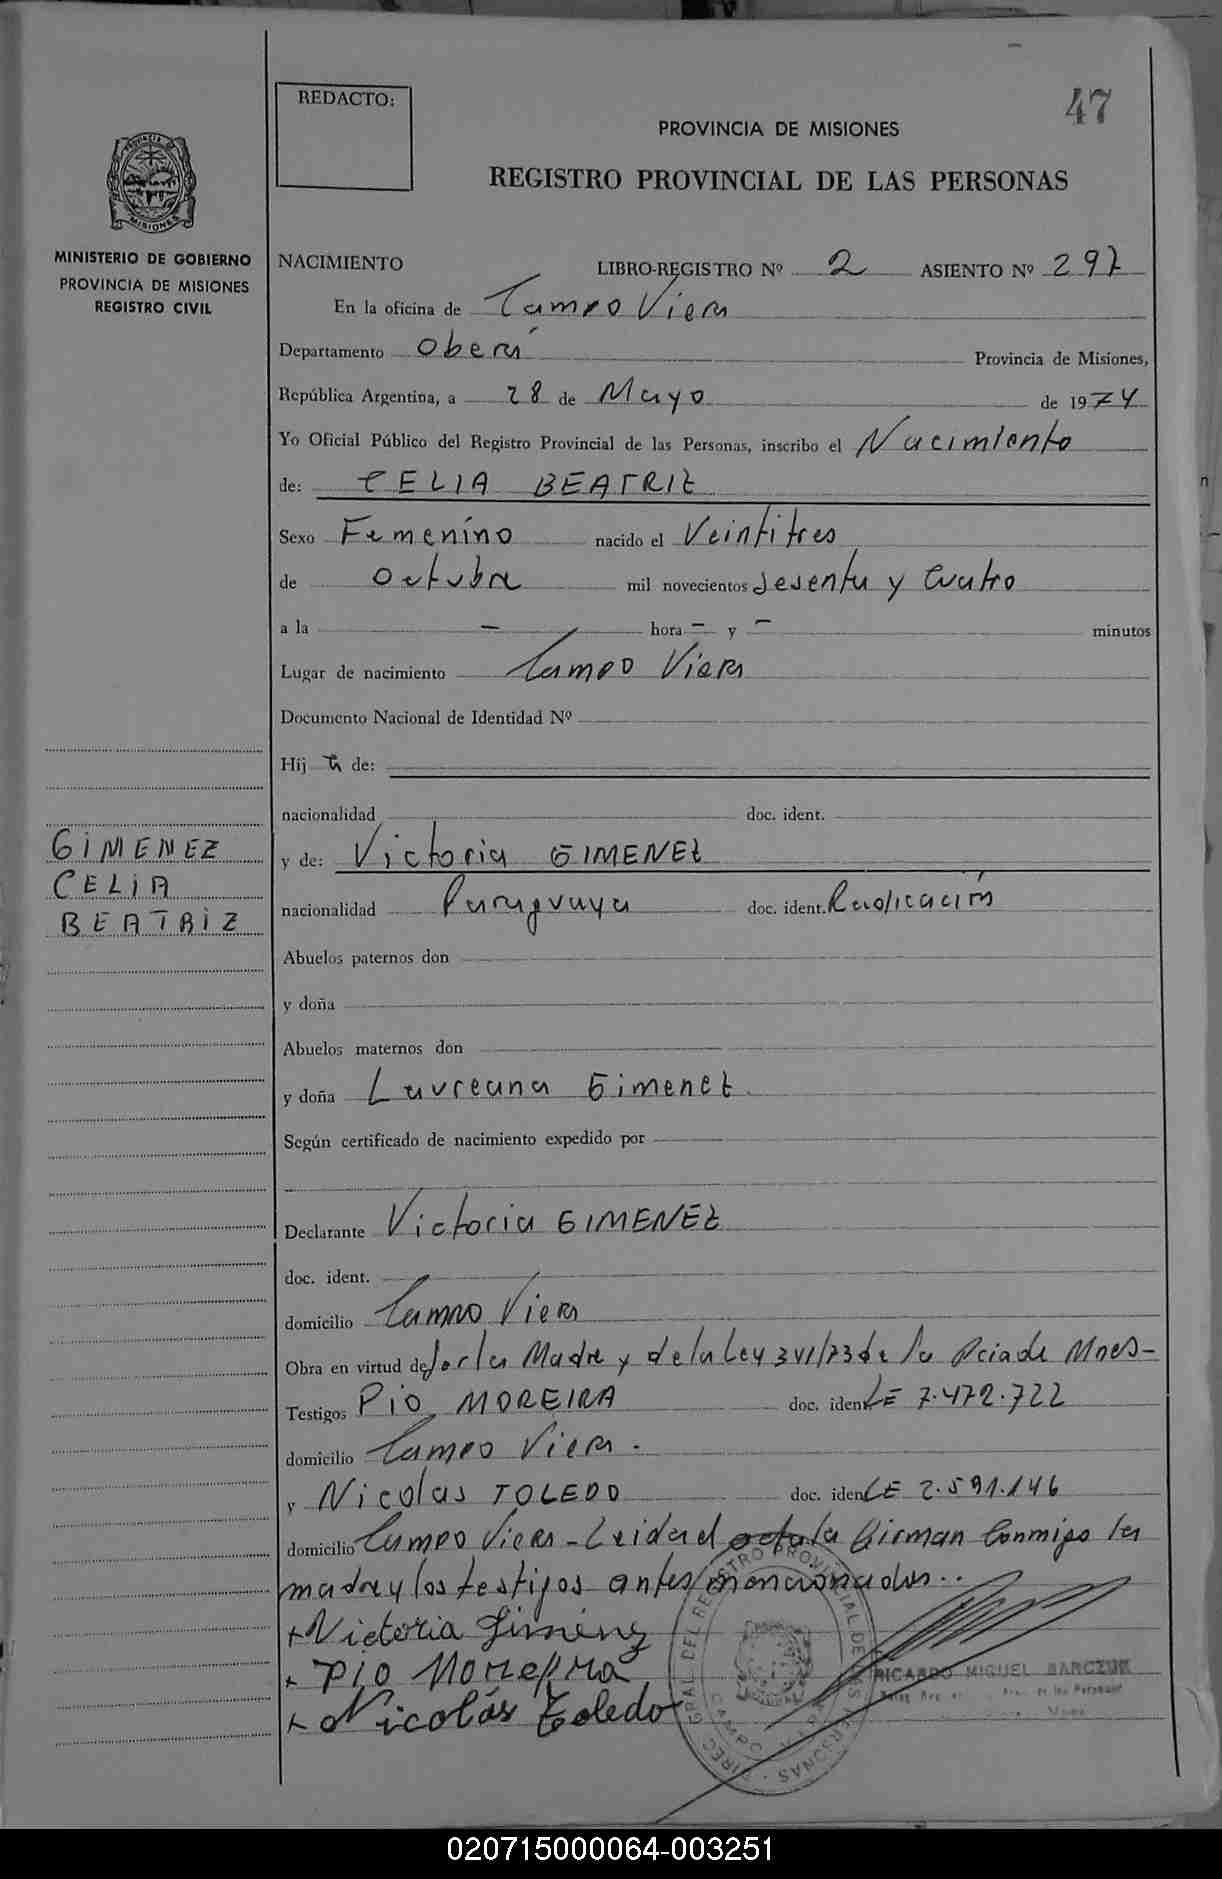 REDACTO:
47
PROVINCIA DE MISIONES
REGISTRO PROVINCIAL DE LAS PERSONAS
PROVINCIA DE
MISIONES
MINISTERIO DE GOBIERNO
PROVINCIA DE MISIONES
REGISTRO CIVIL
NACIMIENTO LIBRO-REGISTRO Nº 2 ASIENTO Nº 297
En la oficina de Campo Viera
Departamento Oberá Provincia de Misiones,
República Argentina, a 28 de Mayo de 1974
Yo Oficial Público del Registro Provincial de las Personas, inscribo el Nacimiento
de: CELIA BEATRIZ
Sexo Femenino nacido el Veintitres
de octubre mil novecientos sesenta y cuatro
a la - hora - y - minutos
Lugar de nacimiento Campo Viera
Documento Nacional de Identidad Nº
Hij a de:
nacionalidad doc. ident.
GIMENEZ
CELIA
BEATRIZ
y de: Victoria GIMENEZ
nacionalidad Paraguaya doc. ident. Radicación
Abuelos paternos don
y doña
Abuelos maternos don
y doña Laureana Gimenez
Según certificado de nacimiento expedido por
Declarante Victoria GIMENEZ
doc. ident.
domicilio Campo Viera
Obra en virtud de ser la Madre y de la Ley 3 VI/73 de la Pcia de Mnes-
Testigos Pio MOREIRA doc. ident LE 7.472.722
domicilio Campo Viera.
y Nicolas TOLEDO doc. ident LE 2.591.146
domicilio Campo Viera - Leida el acta la firman conmigo la
madre y los testigos antes mencionados..
+ Victoria Gimenez
+ Pio Moreira
+ Nicolás Toledo
DIREC. GRAL. DEL REGISTRO PROVINCIAL DE LAS PERSONAS
CAMPO VIERA
RICARDO MIGUEL BARCZUK
020715000064-003251